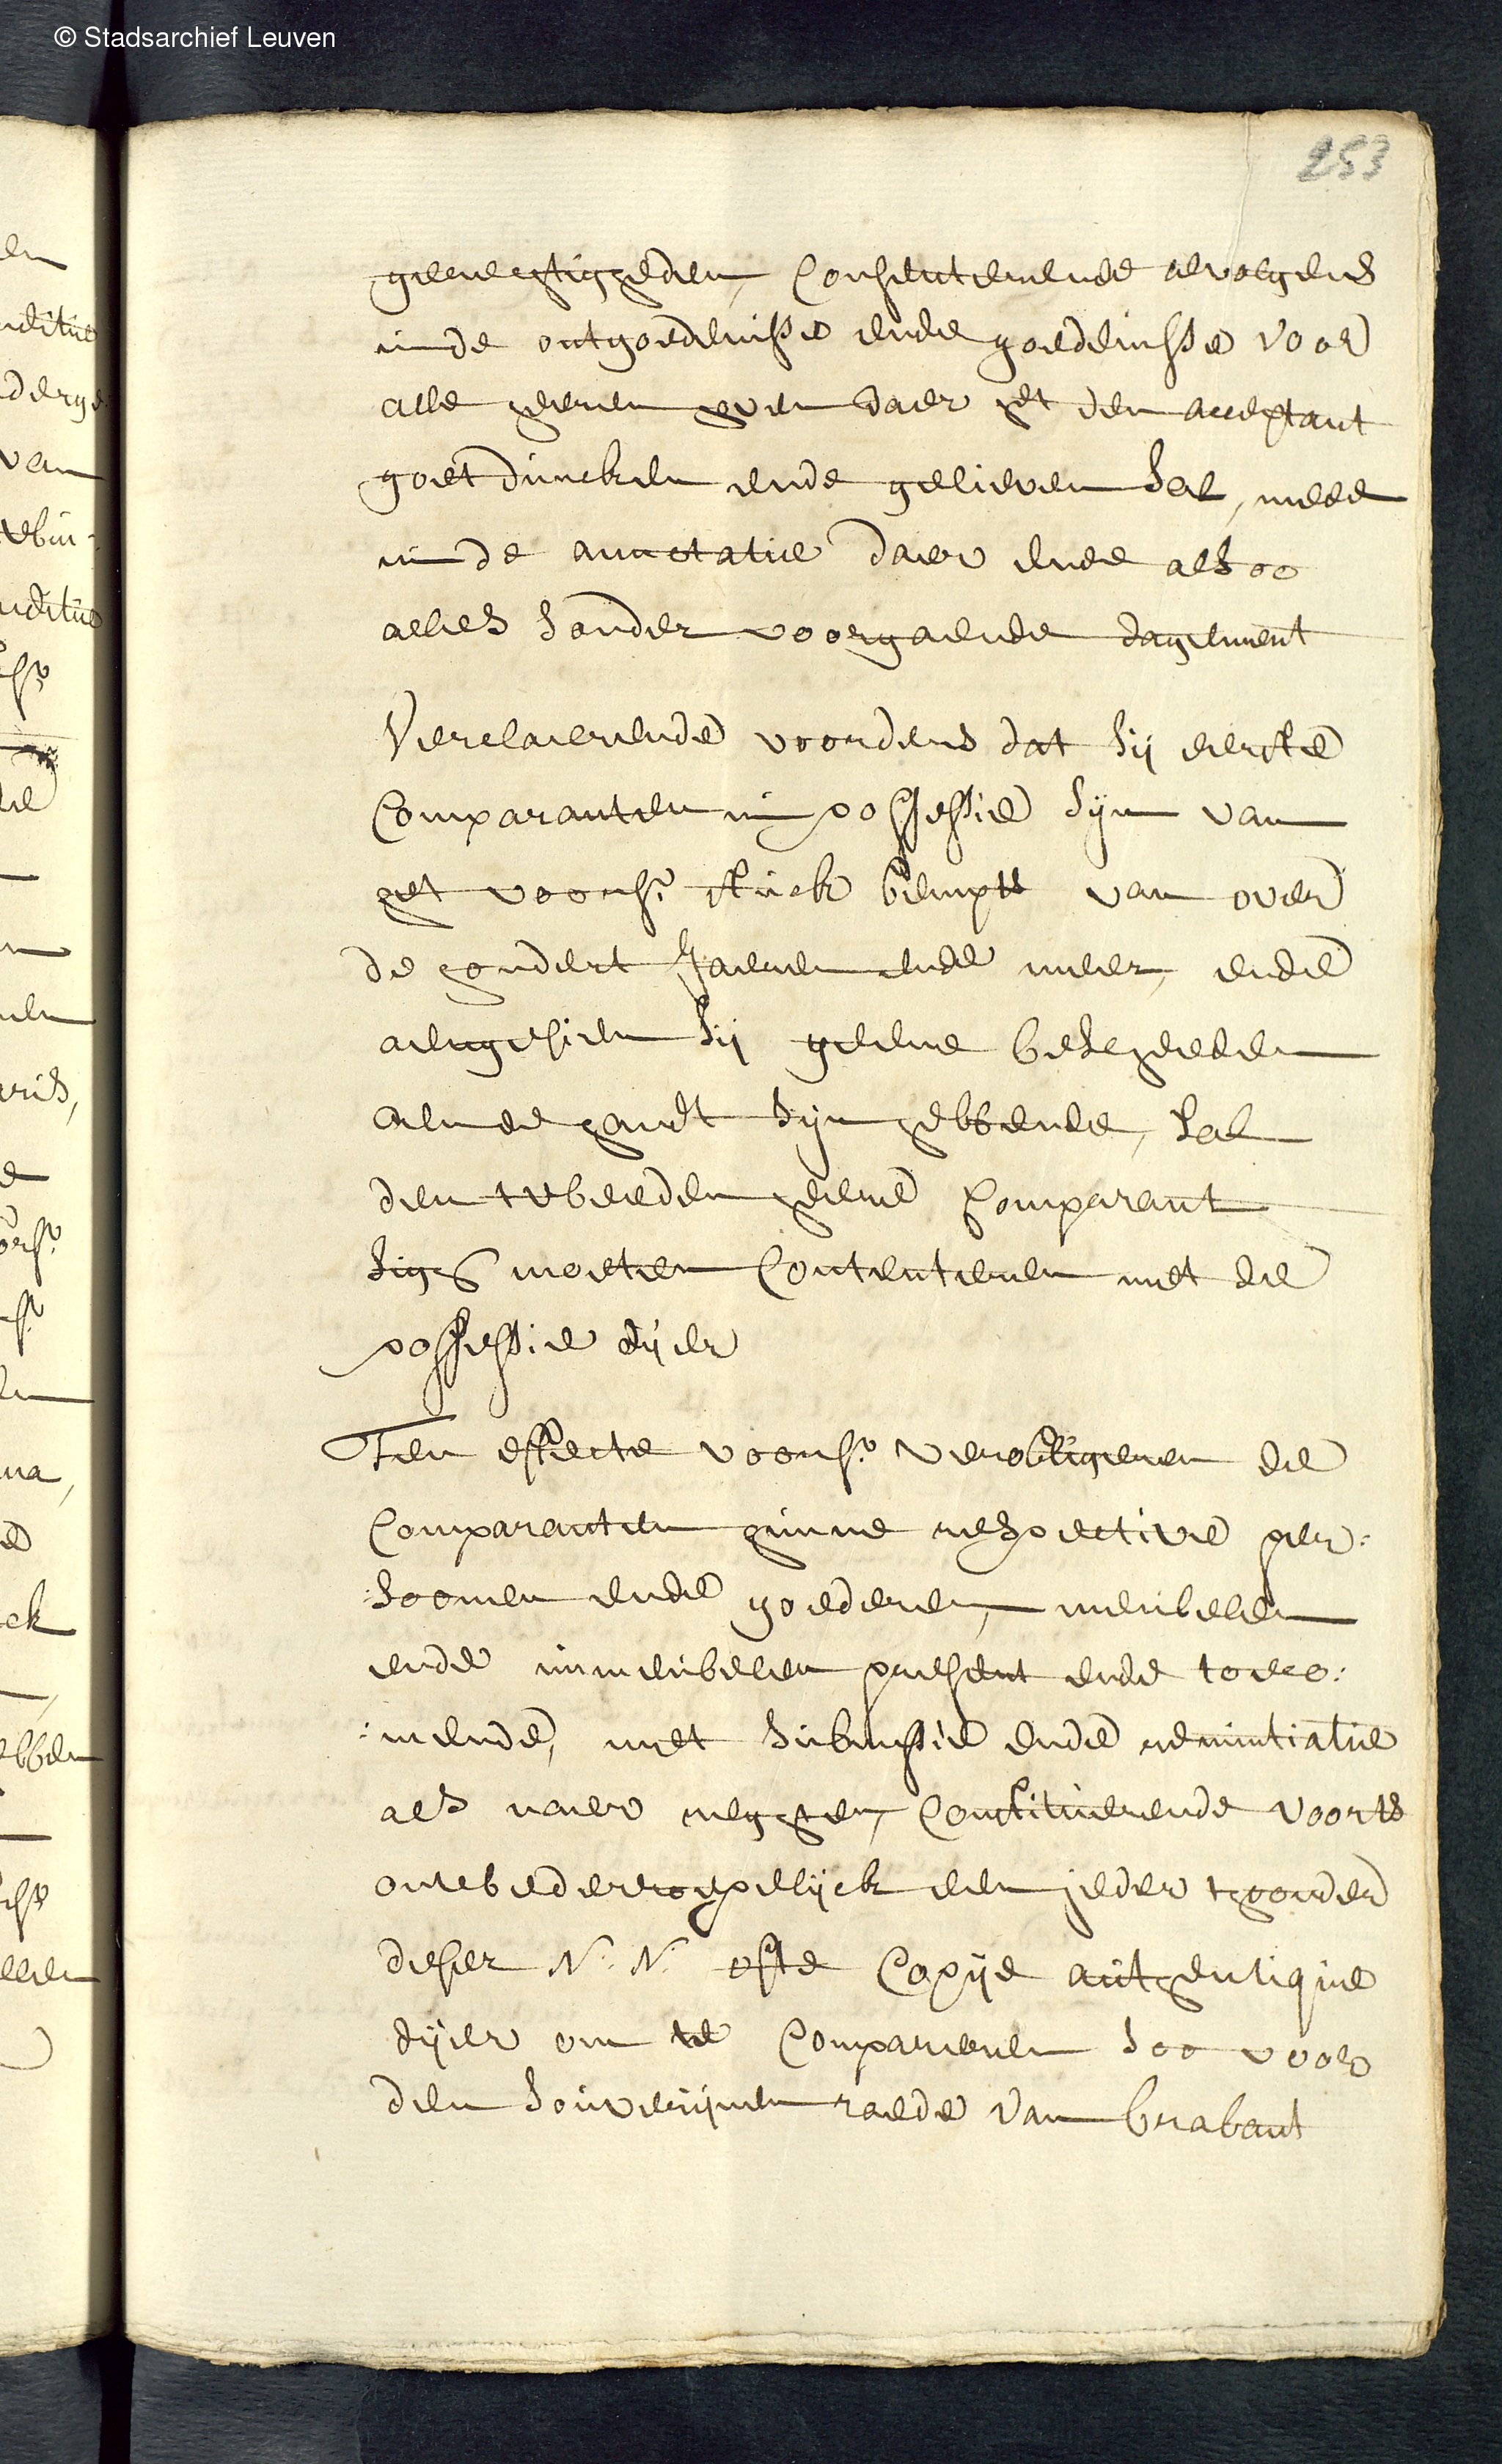 © Stadsarchief Leuven
253
gerechtigheden, Consenterende alvolgens
in de ontgoedenisse ende goedenisse voor
alle heeren hoven daer het den acceptant
goet duncken ende gelieven sal, mede
in de annotatie daer ende alsoo
alles sonder voorgaende dagement
Verclaerende voorders dat sij eerste
Comparanten in possessie sijn van
het voors. stuck bempts van over
de hondert Jaeren ende meer, ende
aengesien sij geene bescheeden
aen de handt sijn hebbende, sal
den tweeden heere Comparant
sigh moeten Contenteren met de
possessie dijer
Ten effecte voors. verobligeren de
Comparanten hunne respective per:
:soonen ende goederen, meubelen
ende immeubelen present ende toeco:
:mende, met submissie ende renuntiatie
als naer reghten, Constituerende voorts
onwederroepelijck een jeder thoonder
deser N. N. ofte Copije authentique
dijer om te Compareren soo voor
den souverijnen raede van brabant